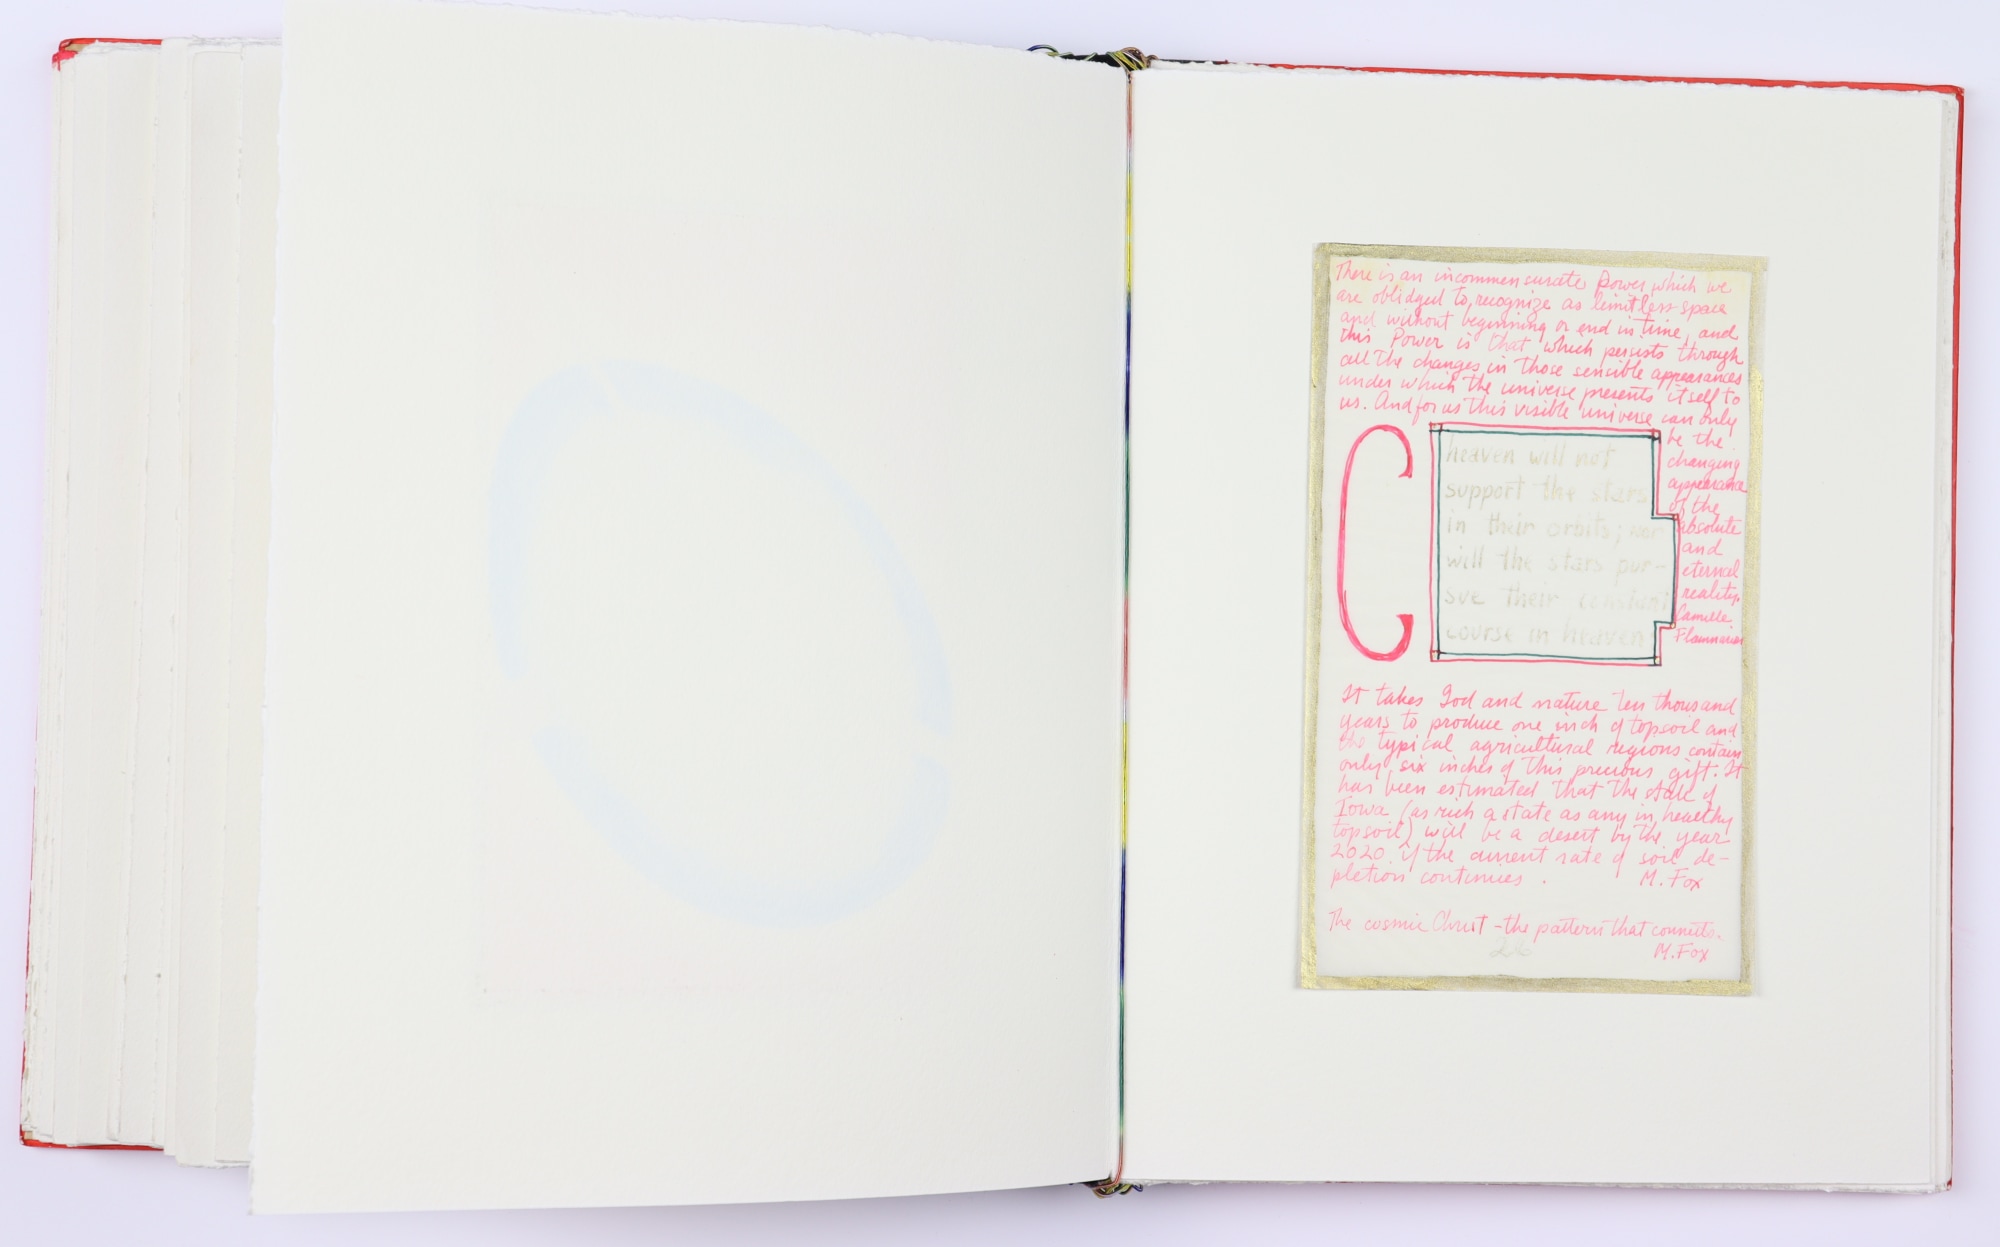 There is an incommensurate Power which we
are oblidged to, recognize as limitless space
and without beginning or end in time, and
this Power is that which persists through
all the changes, in those sensible appearances
under which the universe presents itself to
us. And for us this visible universe can only
be the
changing
appearance
of the
absolute
and
eternal
reality.
Camille
Flammarion
C
heaven will not
support the stars
in their orbits; nor
will the stars pur-
sue their constant
course in heaven
It takes God and nature ten thousand
years to produce one inch of topsoil and
the typical agricultural regions contain
only six inches of this precious gift. It
has been estimated that the state of
Iowa (as rich a state as any in healthy
topsoil) will be a desert by the year
2020 if the current rate of soil de-
pletion continues.
M. Fox
The cosmic Christ - the pattern that connects.
M. Fox
26